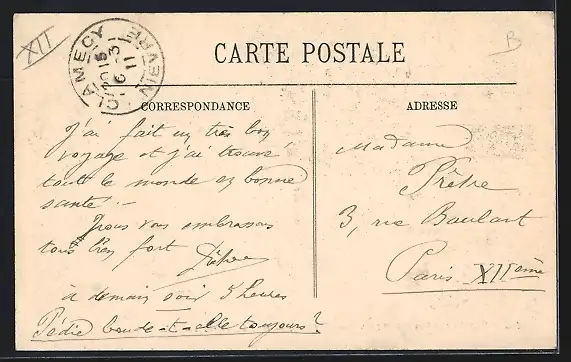 XII
CLAMECY
NIÈVRE
20 15
16 3
11
B
CARTE POSTALE
CORRESPONDANCE
ADRESSE
J'ai fait un très bon
voyage et j'ai trouvé
tout le monde en bonne
santé. -
Nous vous embrassons
tous bien fort
à demain soir 5 heures
Pédie boude-t-elle toujours?
Madame
Prêtre
3, rue Baulant
Paris XIIème